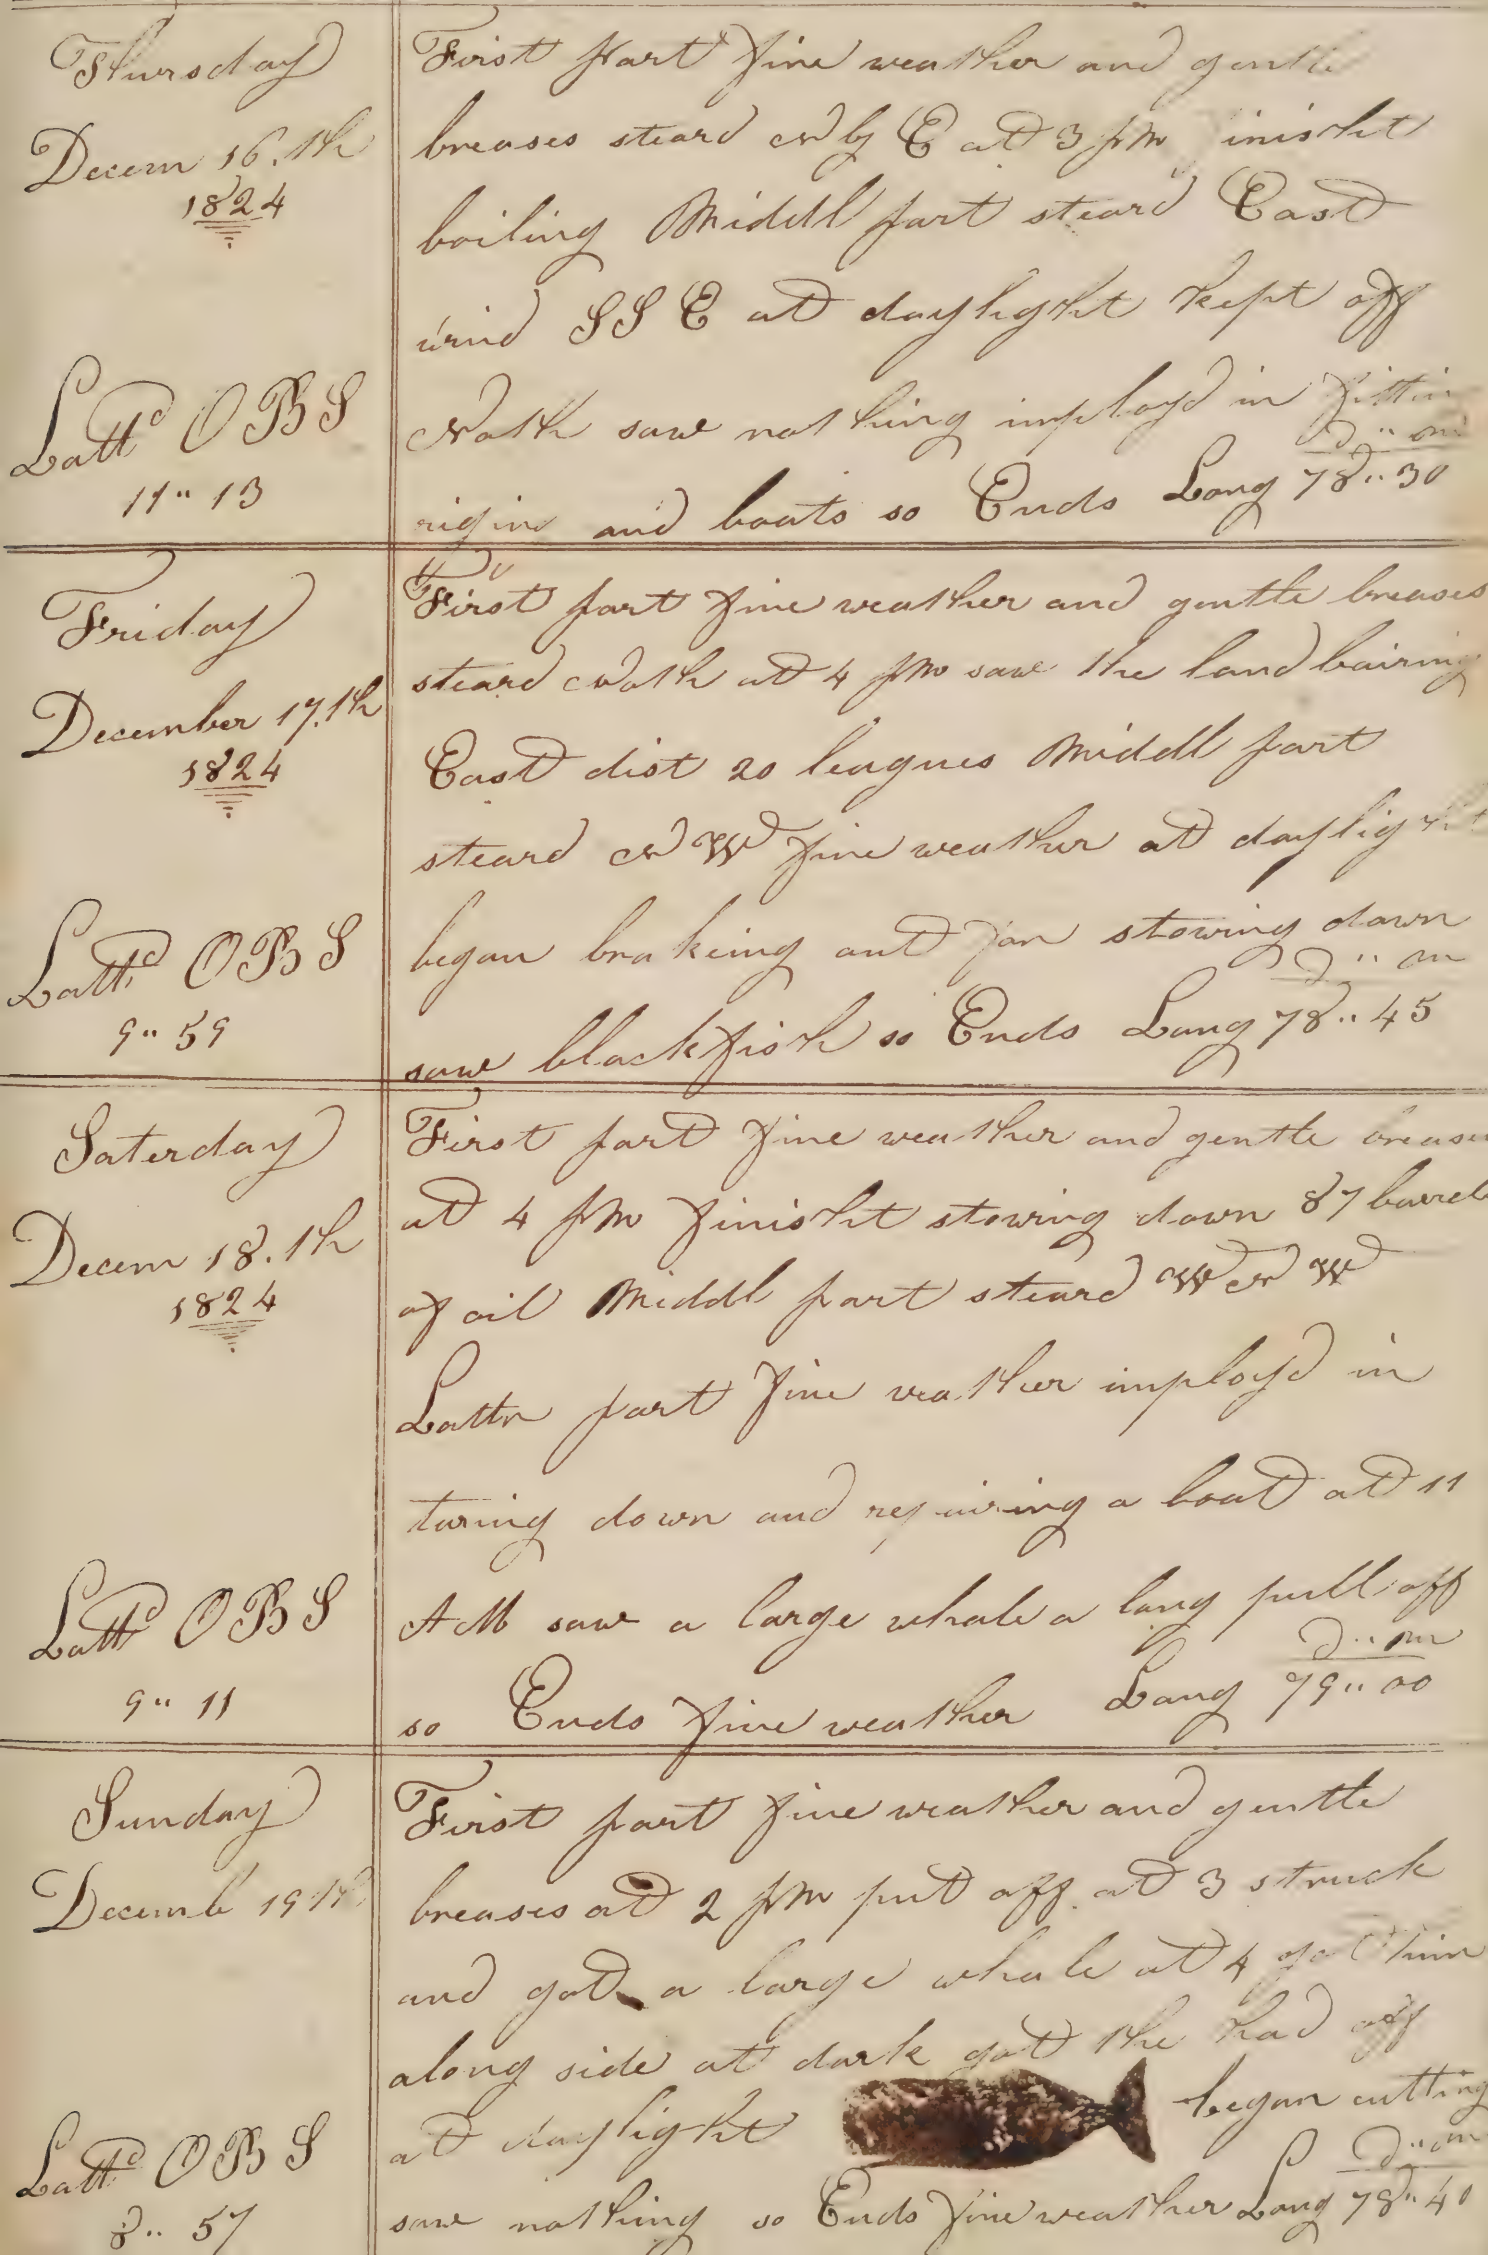 Thursday
Decem 16.th
1824
Lattd OBS
11" 13
First part fine weather and gentle
breases steard N by E at 3 pm finisht
boiling Middl part steard East
wind SSE at daylight kept off
North saw nothing imployd in fittin
D " m
rigins and boats so Ends Long 78" 30
Friday
December 17.th
1824
Lattd OBS
9" 59
First part fine weather and gentle breases
steard North at 4 pm saw the land bairing
East dist 20 leagues Middl part
steard N W fine weather at daylight
began brakeing out for stowing down
D " m
saw blackfish so Ends Long 78" 45
Saterday
Decem 18.th
1824
Lattd OBS
9" 11
First part fine weather and gentle breases
at 4 pm finisht stowing down 87 barrels
of oil Middl part steard W N W
Lattr part fine weather imployd in
taring down and repairing a boat at 11
AM saw a large whale a long pull off
D " m
so Ends fine weather Long 79" 00
Sunday
Decemb 19th
Lattd OBS
8" 57
First part fine weather and gentle
breases at 2 pm put off at 3 struck
and got a large whale at 4 got him
along side at dark got the had off
at daylight began cutting
D " m
saw nothing so Ends fine weather Long 78" 40